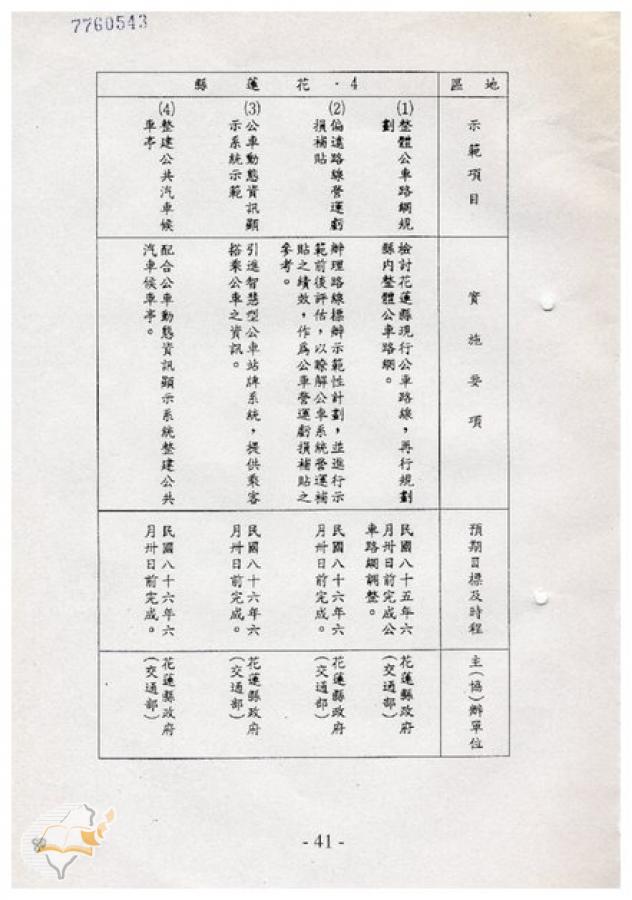 7760543
地區
4．花蓮縣
示範項目
(1)整體公車路網規
劃
(2)偏遠路線營運虧
損補貼
(3)公車動態資訊顯
示系統示範
(4)整建公共汽車候
車亭
實施要項
檢討花蓮縣現行公車路線，再行規劃
縣內整體公車路網。
辦理路線標辦示範性計劃，並進行示
範前後評估，以瞭解公車系統營運補
貼之績效，作為公車營運虧損補貼之
參考。
引進智慧型公車站牌系統，提供乘客
搭乘公車之資訊。
配合公車動態資訊顯示系統整建公共
汽車候車亭。
預期目標及時程
民國八十五年六
月卅日前完成公
車路網調整。
民國八十六年六
月卅日前完成。
民國八十六年六
月卅日前完成。
民國八十六年六
月卅日前完成。
主(協)辦單位
花蓮縣政府
(交通部)
花蓮縣政府
(交通部)
花蓮縣政府
(交通部)
花蓮縣政府
(交通部)
- 41 -